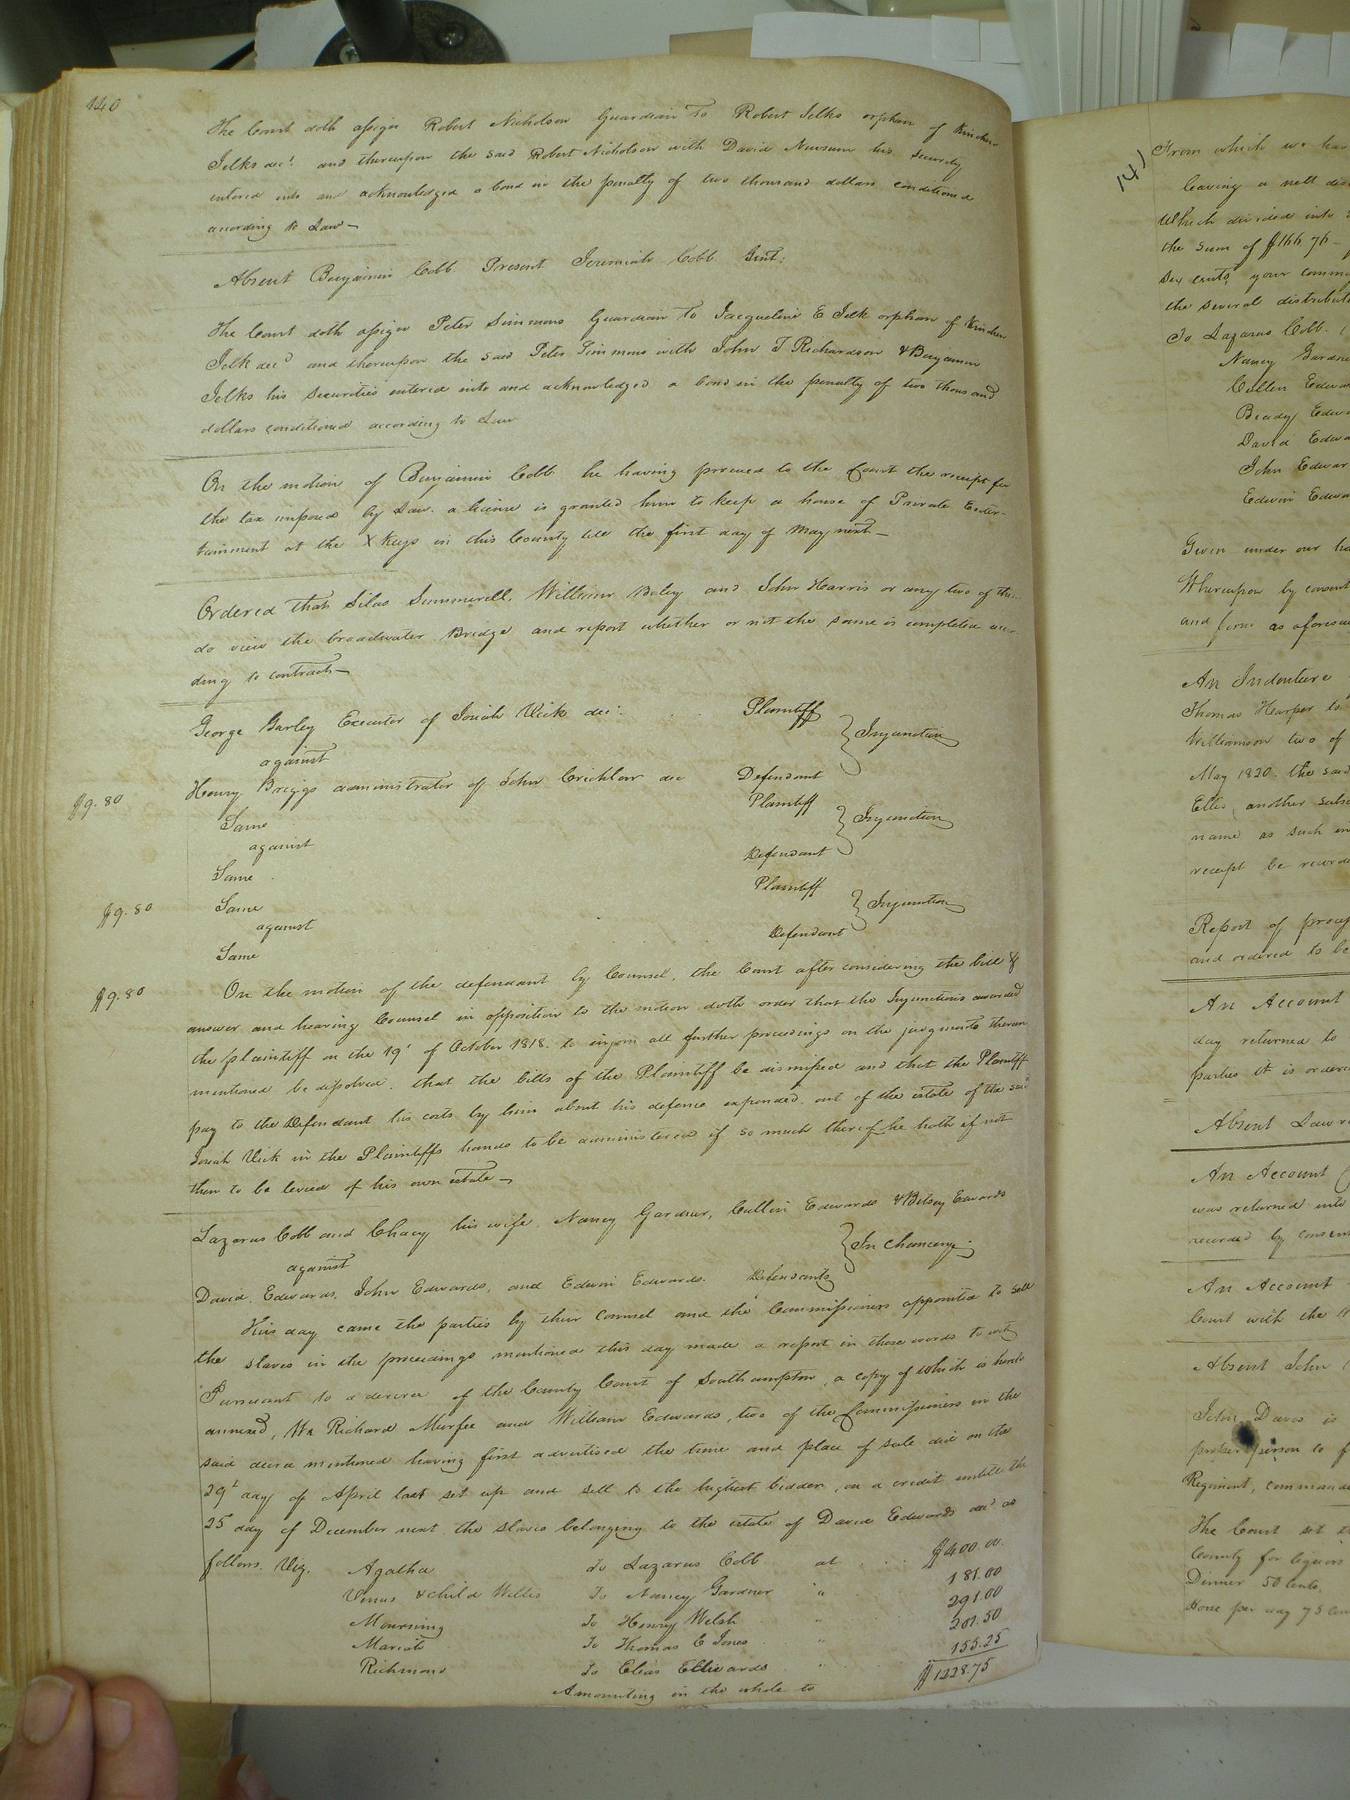 140
The Court doth assign Robert Nicholson Guardian To Robert Jelks orphan of Kinchen
Jelks decd. and thereupon the said Robert Nicholson with David Newsum his security
entered into and acknowledged a bond in the penalty of two thousand dollars conditioned
according to Law—
Absent Benjamin Cobb Present Jeremiah Cobb Gent.
The Court doth assign Peter Simmons Guardian To Jacqueline E Jelk orphan of Kinchen
Jelk decd and thereupon the said Peter Simmons with John T Richardson & Benjamin
Jelks his securities entered into and acknowledged a bond in the penalty of two thousand
dollars conditioned according to Law
On the motion of Benjamin Cobb he having proved to the Court the receipt for
the tax imposed by Law. a license is granted him to keep a house of Private Enter-
tainment at the X Keys in this County till the first day of May next—
Ordered that Silas Summerell, William and John Harris or any two of them
do view the broadwater Bridge and report whether or not the same is completed accor
ding to contract—
George Gurley Executor of Josiah Vick decd. Plaintiff
against } Injunction
Henry Briggs administrator of John Crichlow dec Defendant
$9.80
Same Plaintiff
against } Injunction
Same Defendant
$9.80
Same Plaintiff
against } Injunction
Same Defendant
$9.80
On the motion of the defendant by Counsel, the Court after considering the bill &
answer and hearing Counsel in opposition to the motion doth order that the Injunctions awarded
the plaintiff on the 19t of October 1818. to injoin all further proceedings on the judgments therein
mentioned be dissolved. that the bills of the Plaintiff be dismissed and that the Plaintiff
pay to the Defendant his costs by him about his defence expended. out of the estate of the said
Josiah Vick in the Plaintiffs hands to be administered if so much thereof he hath if not
then to be levied of his own estate—
Lazarus Cobb and Chacy his wife, Nancy Gardner, Cullin Edwards & Betsey Edwards
against } In Chancery.
David Edwards, John Edwards, and Edwin Edwards. Defendants
This day came the parties by their counsel and the Commissioners appointed to sell
the slaves in the proceedings mentioned this day made a report in these words to wit
Pursuant to a decree of the County Court of Southampton, a copy of which is hereto
annexed, We Richard Murfee and William Edwards, two of the Commissioners in the
said decree mentioned having first advertised the time and place of sale did on the
29t day of April last set up and sell to the highest bidder, on a credit untill the
25 day of December next the slaves belonging to the estate of David Edwards decd as
follows. Viz. Agatha To Lazarus Cobb at $400.00.
Venus & child Willis To Nancy Gardner " 181.00
Mourning To Henry Welsh " 291.00
Mariah To Thomas C Jones " 201.50
Richmond To Elias Edwards " 155.25
Amounting in the whole to $1228.75
141
From which we hav
leaving a nett
Which divided into
the sum of $166 76—
six cents your comm
the several distribut
To Lazarus Cobb.
Nancy Gardne
Cullen Edwa
David Edwa
John Edwar
Edwin Edwa
Given under our ha
Whereupon by consent
and form as aforesa
An Indenture
Thomas Harper to
Williamson two of
May 1820 the said
Ellis another subsc
name as such
receipt be recorde
Report of proces
and ordered to be
An Account
day returned to
parties it is ordere
Absent Lawre
An Account
was returned into
recorded by consen
An Account
Court with the
Absent John
John Daves is
proper person to f
Regiment, command
The Court set t
County for liquors
Dinner 50 cents.
Horse per day 75 cen